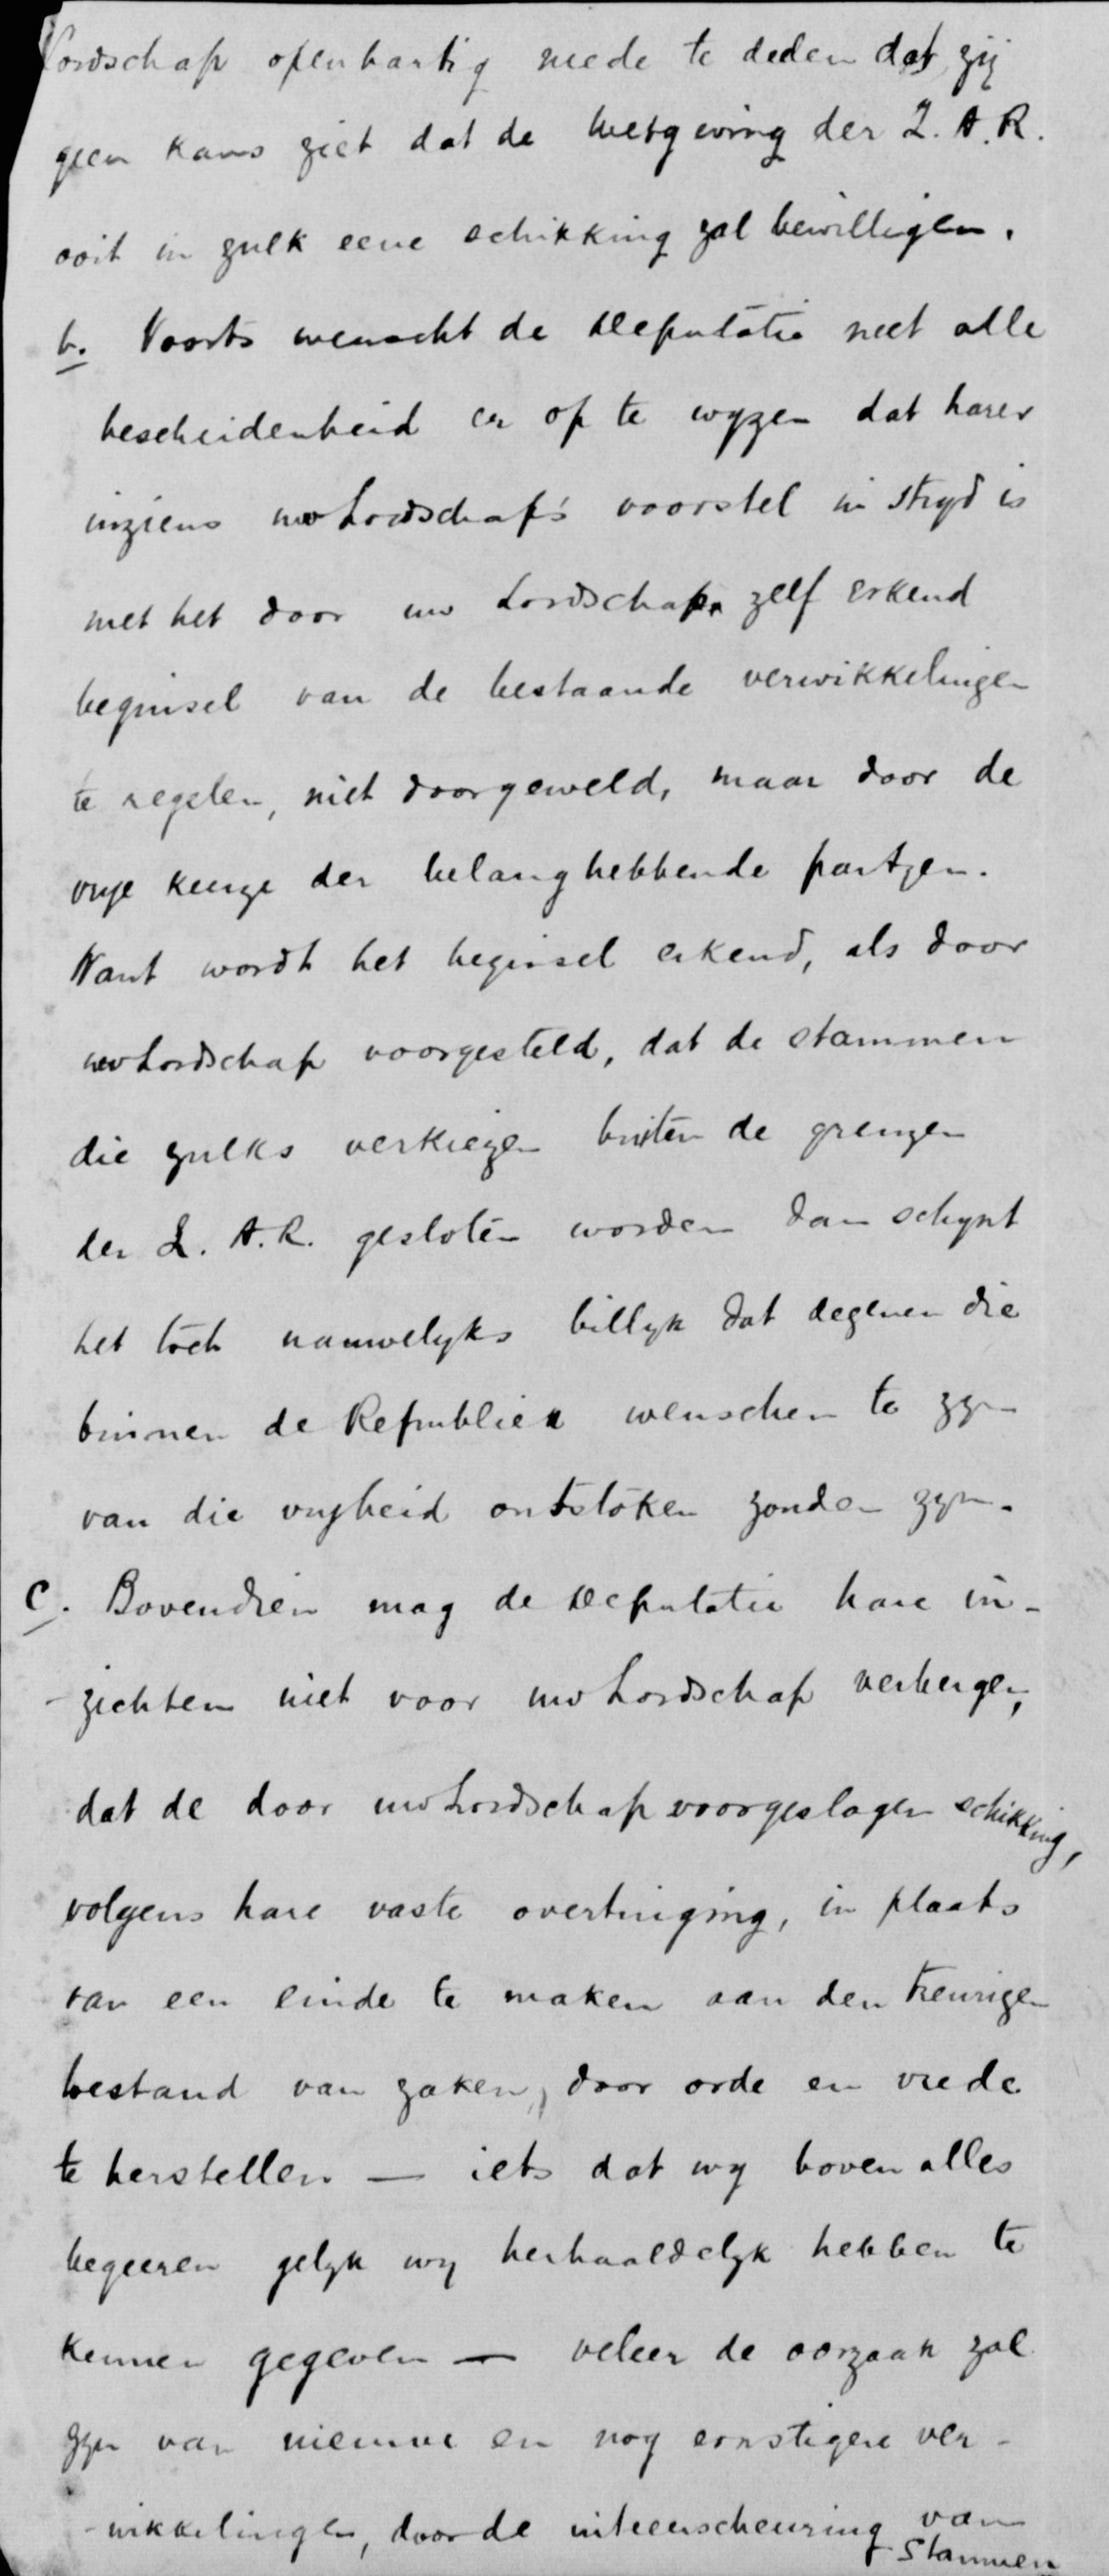 Lordschap openhartig mede te deelen dat zij
geen kans ziet dat de wetgeving der Z. A. R.
ooit in zulk eene schikking zal bewilligen.
b. Voorts wenscht de Deputatie met alle
bescheidenheid er op te wyzen dat harer
inziens uw Lordschap's voorstel in stryd is
met het door uw Lordschap zelf erkend
beginsel van de bestaande verwikkelingen
te regelen, niet door geweld, maar door de
vrye keuze der belanghebbende partyen.
Want wordt het beginsel erkend, als door
uw Lordschap voorgesteld, dat de stammen
die zulks verkiezen buiten de grenzen
der Z. A. R. gesloten worden dan schynt
het toch nauwelyks billyk dat degenen die
binnen de Republiek wenschen te zyn
van die vryheid ontstoken zouden zyn.
c. Bovendien mag de Deputatie hare in-
-zichten niet voor uw Lordschap verbergen,
dat de door uw Lordschap voorgeslagen schikking,
volgens hare vaste overtuiging, in plaats
van een einde te maken aan den treurigen
toestand van zaken, door orde en vrede
te herstellen — iets dat wy boven alles
begeeren gelyk wy herhaaldelyk hebben te
kennen gegeven — veleer de oorzaak zal
zyn van nieuwe en nog ernstigere ver-
-wikkelingen, door de uiteenscheuring van
stammen